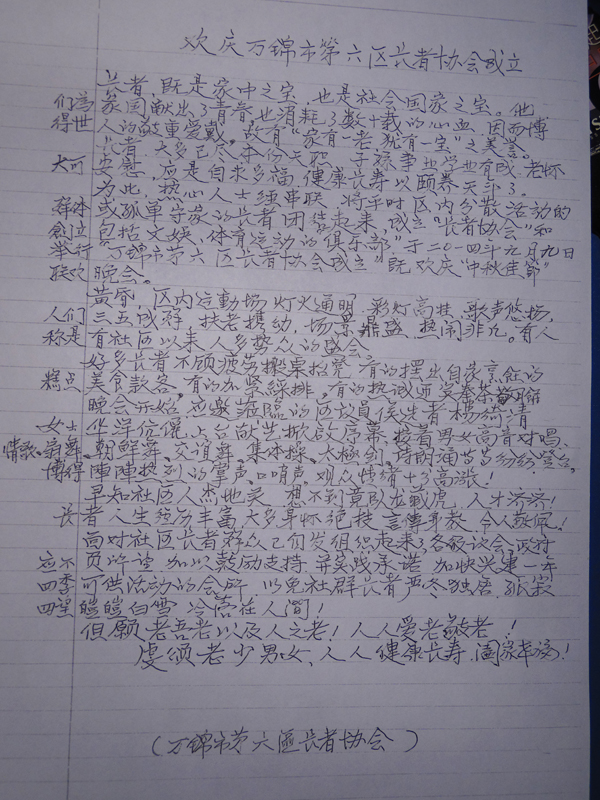 欢庆万锦市第六区长者协会成立
长者,既是家中之宝,也是社会国家之宝。他
们为家国献出了青春,也消耗了数十载的心血,因而博
得世人的敬重爱戴。故有"家有一老,犹有一宝"之美誉。
长者,大多已尽本份天职,子孩事业学业有成,老怀
大可安慰,应是自求多福,健康长寿以颐养天年了。
为此,热心人士经串联,将平时区内分散活动的
群体或孤单守家的长者团结起来,成立"长者协会"和
创立包括文娱,体育运动的"俱乐部"于二〇一四年九月九日
举行"万锦市第六区长者协会成立"既欢庆"中秋佳节"
联欢晚会。
黄昏,区内运動场,灯火通明,彩灯高挂,歌声悠扬,
人们三五成群,扶老携幼,场景鼎盛,热闹非凡。有人
称是有社区以来人多势众的盛会。
好多长者不顾疲劳搬桌抬凳,有的摆出自装烹饪的
糕点美食款客,有的加紧綵排,有的热诚
晚会开始,应邀莅临的区议员候选者杨绮清
女士华洋伉俪上台献艺掀啟序幕,接着男女高音对唱、
情歌、新舞、朝鲜舞、交谊舞、集体操、太極剑、诗朗诵节节纷纷登台。
博得陣陣热烈的掌声、口哨声,观众情绪十分高涨!
早知社区人杰地灵,想不到竟卧龙藏虎,人才济济!
长者人生经历丰富,大多身怀绝技,言傳身教,令人敬佩!
面对社区长者群众已们发组织起来了,各级议会,政府
应不负许诺,加以鼓励支持,并实践承诺,加快兴建一年
四季可供活动的会所,以免社群长者严冬独居,孤寂
四望皚皚白雪,冷落在人間!
但願老吾老以及人之老!人人爱老敬老!
虔颂老少男女、人人健康長寿、阖家幸福!
(万锦市第六區長者协会)